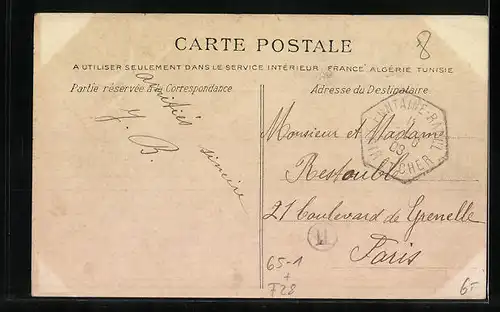 8
CARTE POSTALE
A UTILISER SEULEMENT DANS LE SERVICE INTÉRIEUR. FRANCE ALGÉRIE TUNISIE
Partie réservée à la Correspondance
Adresse du Destinataire
amitiés
sincère
J. B.
FONTAINE-RAOUL
LOIR-ET-CHER
Monsieur et Madame
Restoubl
21 boulevard de Grenelle
Paris
H
65-1
+
F28
6-